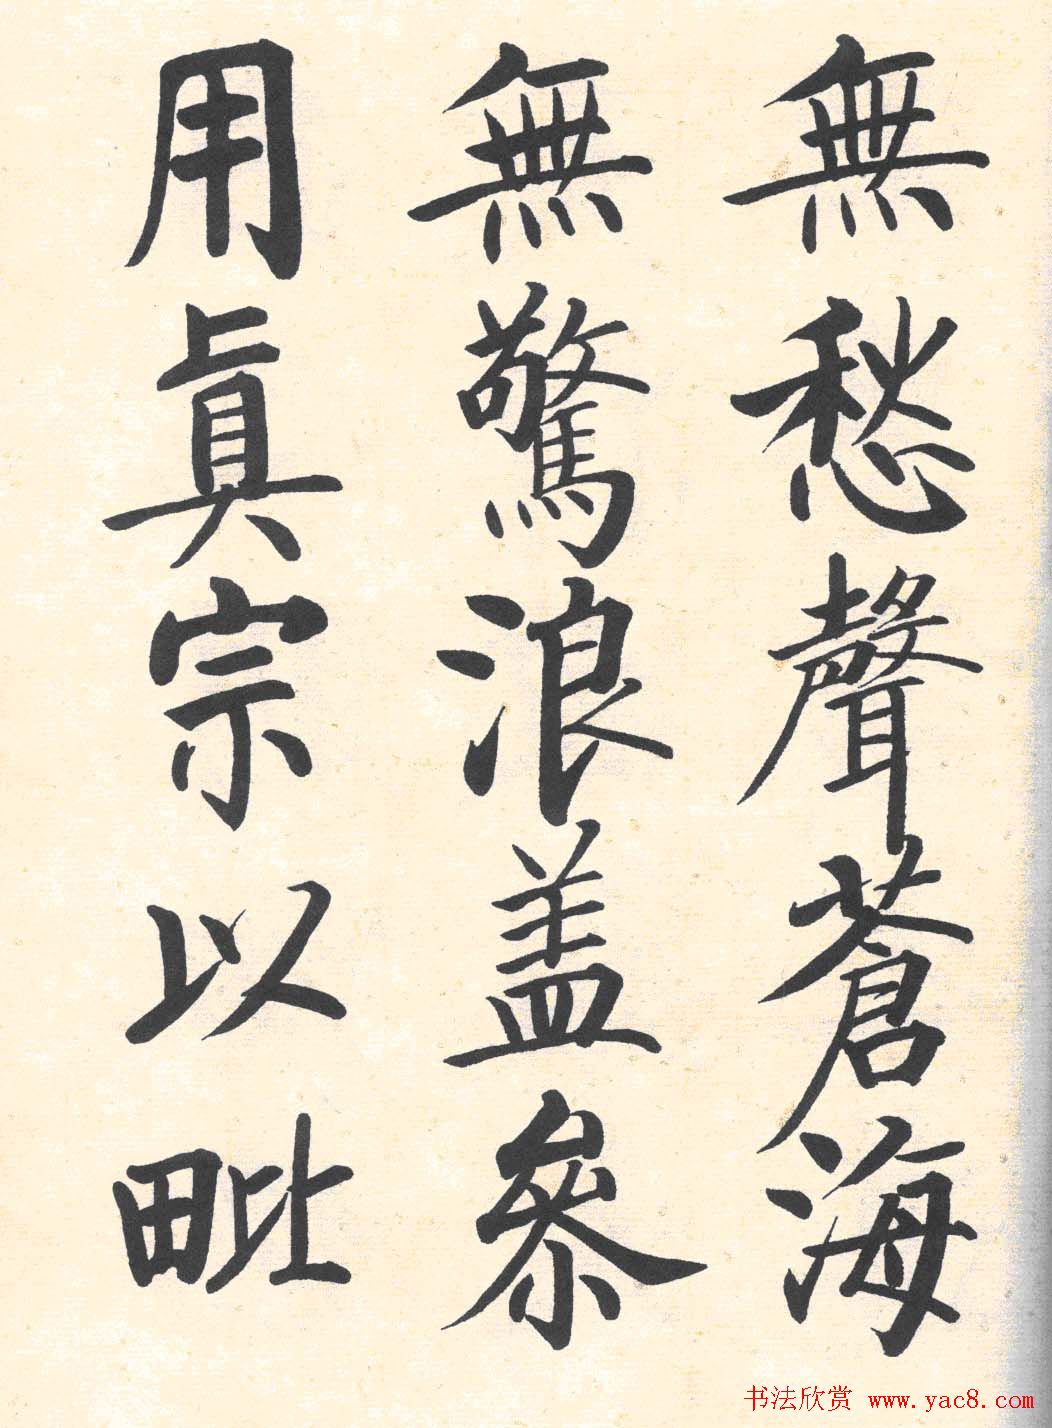 無愁聲蒼海
無驚浪盖叅
用眞宗以毗
书法欣赏 www.yac8.com